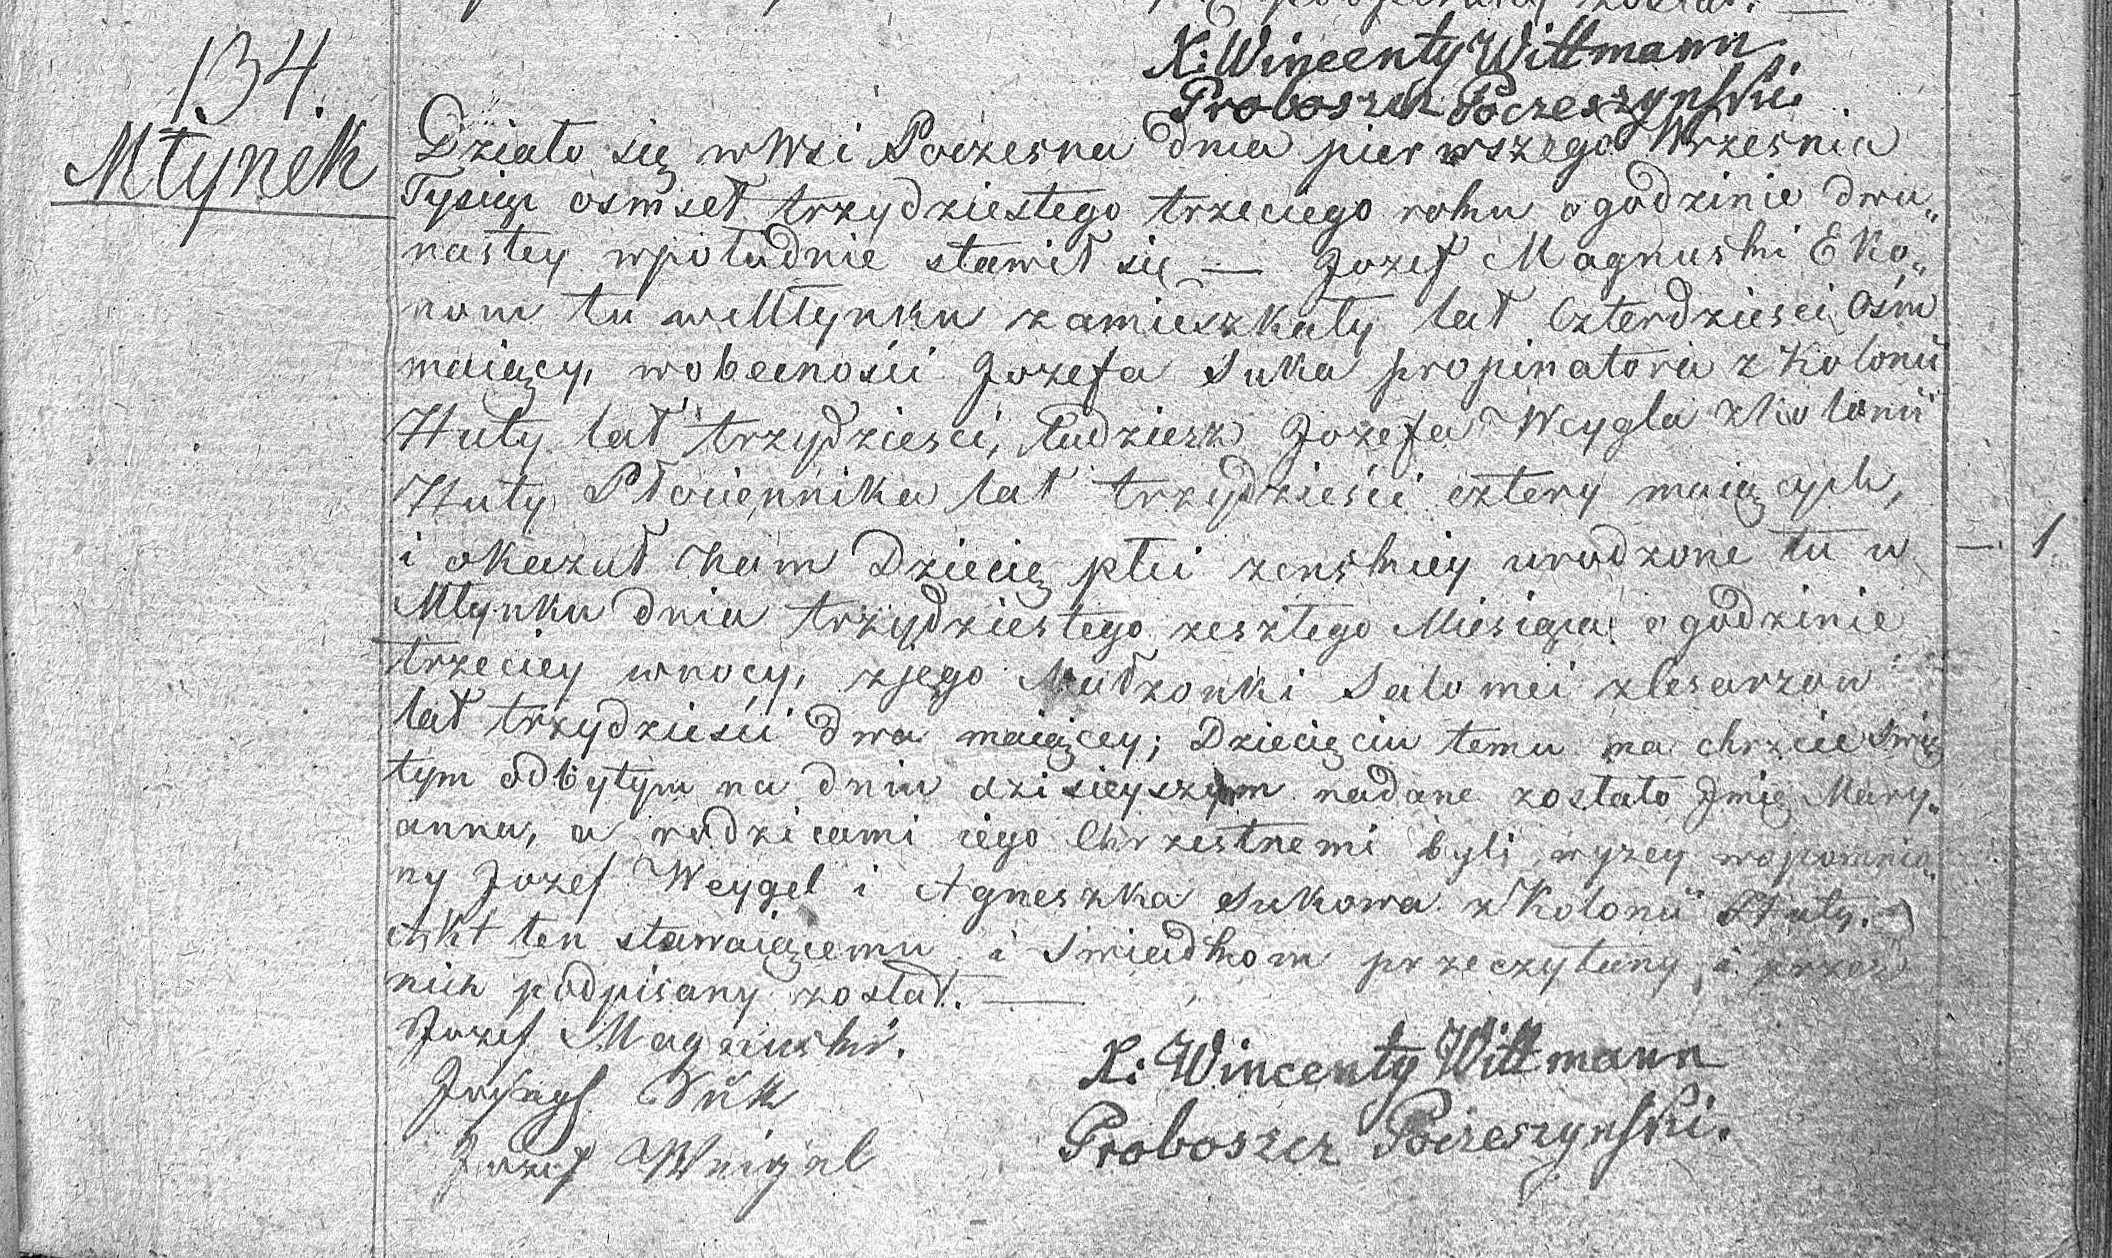 został.
X: Wincenty Wittmann
Proboszcz Poczeszynski.
134.
Młynek
Działo się w Wsi Poczesna dnia pierwszego Wrzesnia
Tysiąc osmset trzydziestego trzeciego roku o godzinie dwu„
nastey wpołudnie stawił się — Jozef Magnuski Eko„
nom tu w Młynku zamieszkały lat Czterdziesci Ośm
maiący, wobecności Jozefa Suka propinatora z Kolonii
Huty lat trzydziesci, tudziesz Jozefa Weygla z Kolonii
Huty Płociennika lat trzydzieści cztery maiących,
i okazał nam Dziecię płci zenskiey urodzone tu w — 1.
Młynku dnia trzydziestego zeszłego Miesiąca o godzinie
trzeciey wnocy, z jego Małzonki Salomei z Cesarzow
lat trzydzieści dwa maiącey; Dziecięciu temu na chrzcie Swię
tym odbytym na dniu dzisieyszym nadane zostało Jmię Mary„
anna, a rodzicami iego Chrzestnemi byli wyzey wspomnio„
ny Jozef Weygel i Agneszka Sukowa z Kolonii Huty.
Akt ten stawaiącemu i Swiadkom przeczytany i przez
nich podpisany został. —
Jozef Magnuski.
Joseph Suk
Jozef Weigel
X: Wincenty Wittmann
Proboszcz Poczeszynski.